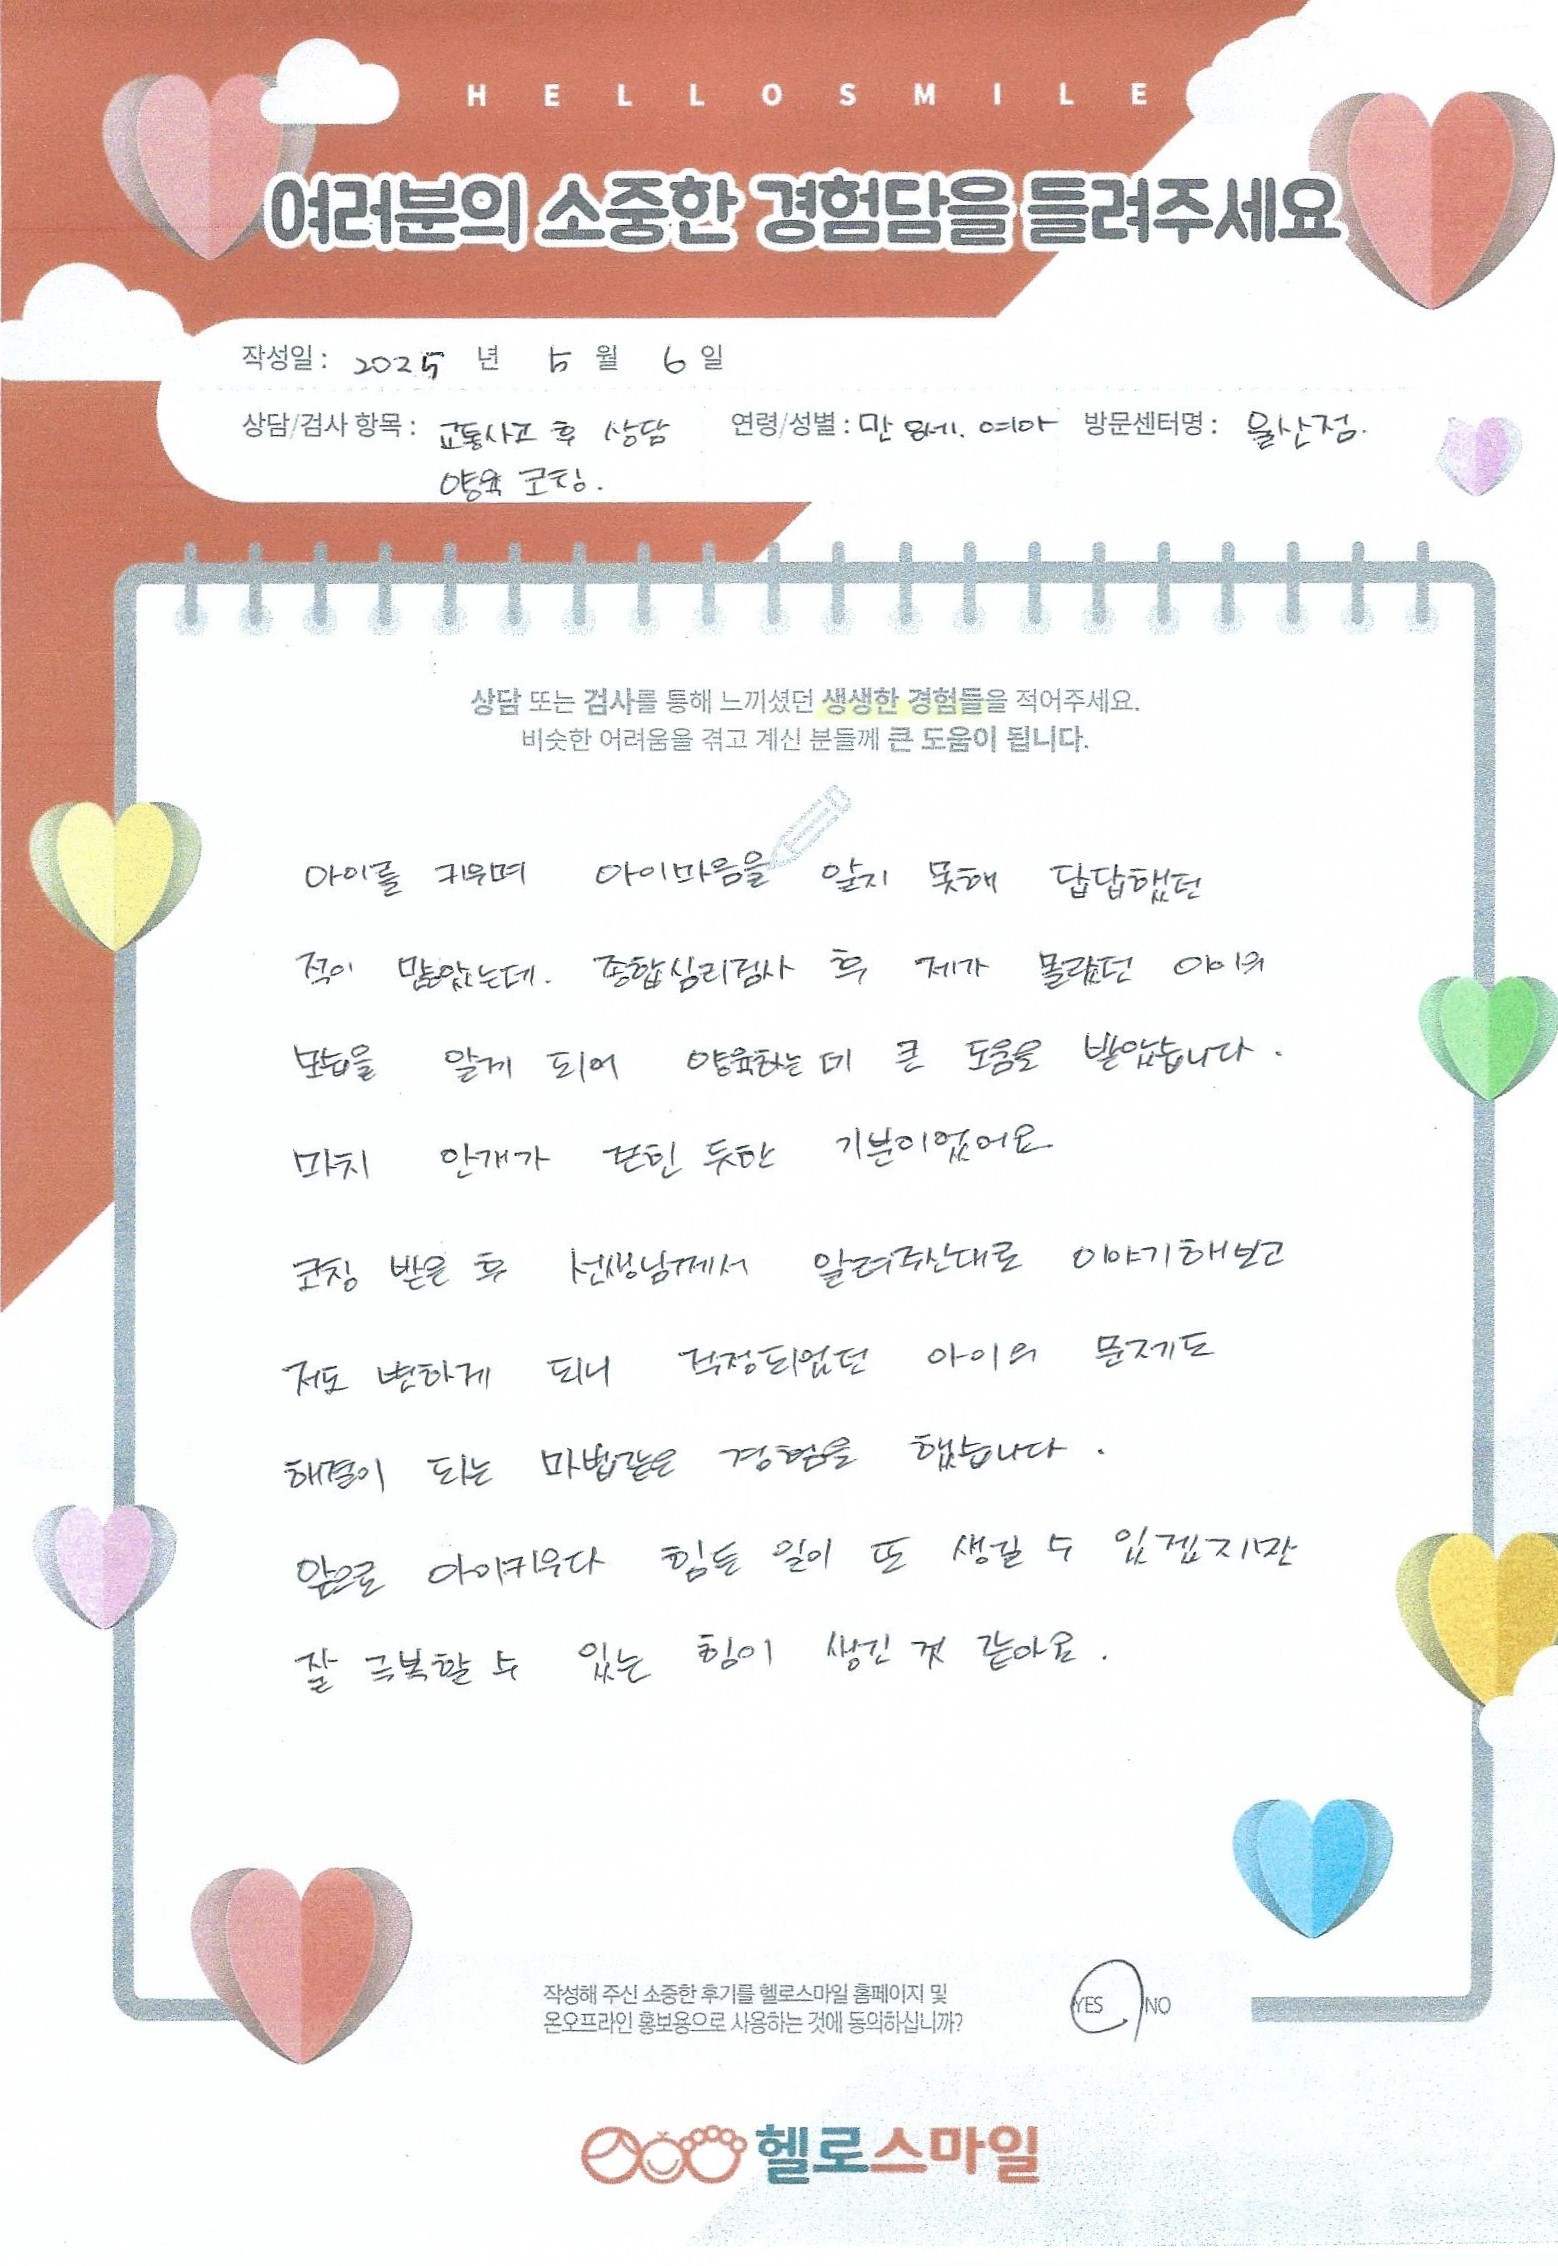 HELLOSMILE
여러분의 소중한 경험담을 들려주세요
작성일 : 2025 년 5 월 6 일
상담/검사 항목 : 교통사고 후 상담 연령/성별 : 만 8세. 여아 방문센터명 : 울산점.
양육 코칭.
상담 또는 검사를 통해 느끼셨던 생생한 경험들을 적어주세요.
비슷한 어려움을 겪고 계신 분들께 큰 도움이 됩니다.
아이를 키우며 아이마음을 알지 못해 답답했던
적이 많았는데. 종합심리검사 후 제가 몰랐던 아이의
모습을 알게 되어 양육하는데 큰 도움을 받았습니다.
마치 안개가 걷힌 듯한 기분이었어요
코칭 받은 후 선생님께서 알려주신대로 이야기해보고
저도 변하게 되니 걱정되었던 아이의 문제도
해결이 되는 마법같은 경험을 했습니다.
앞으로 아이키우다 힘든 일이 또 생길 수 있겠지만
잘 극복할 수 있는 힘이 생긴 것 같아요.
작성해 주신 소중한 후기를 헬로스마일 홈페이지 및
온오프라인 홍보용으로 사용하는 것에 동의하십니까? YES / NO
헬로스마일